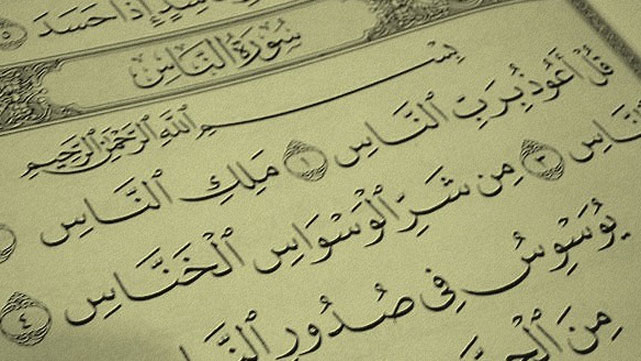 سِدٍ إِذَا حَسَدَ ٥
سُورَةُ النَّاسِ
بِسْمِ اللَّهِ الرَّحْمَٰنِ الرَّحِيمِ
قُلْ أَعُوذُ بِرَبِّ ٱلنَّاسِ ١ مَلِكِ ٱلنَّاسِ
ٱلنَّاسِ ٣ مِن شَرِّ ٱلْوَسْوَاسِ ٱلْخَنَّاسِ ٤
يُوَسْوِسُ فِى صُدُورِ ٱلنَّا
مِنَ ٱلْجِنَّ